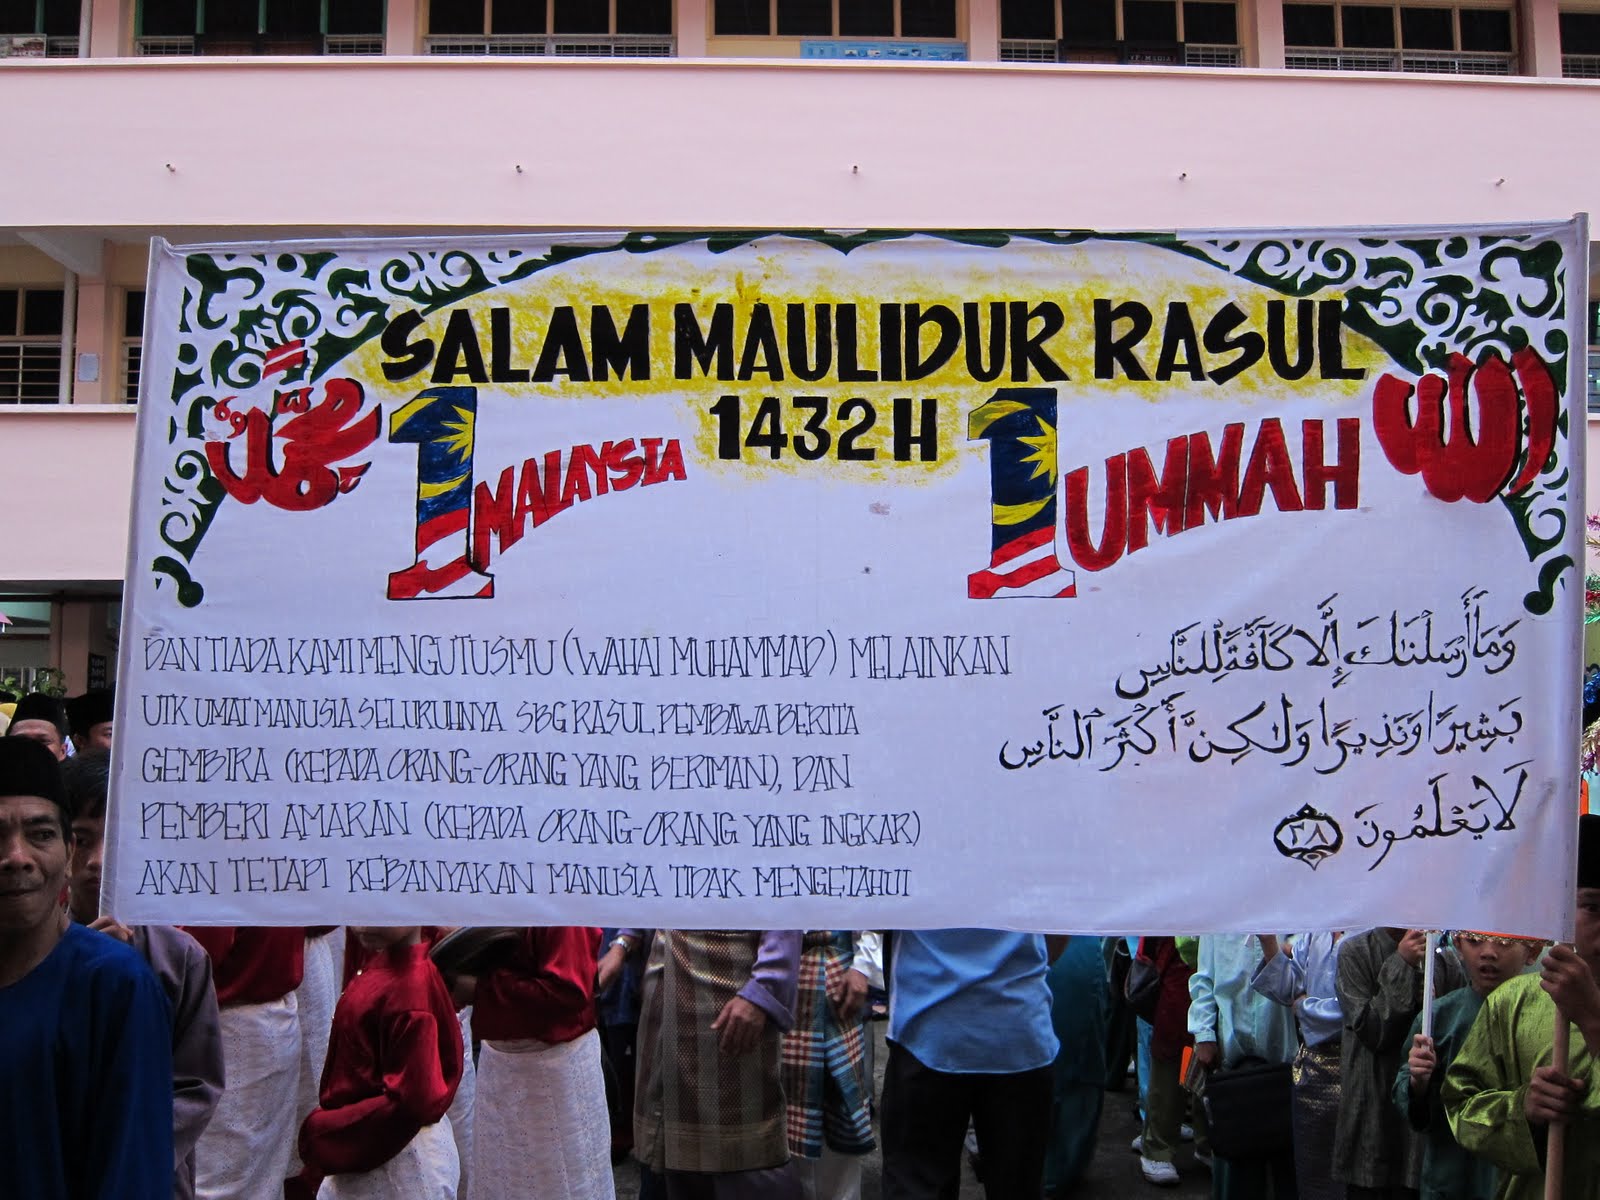 SALAM MAULIDUR RASUL
1432 H
محمد
1 MALAYSIA
1 UMMAH
الله
DAN TIADA KAMI MENGUTUSMU (WAHAI MUHAMMAD) MELAINKAN
UTK UMAT MANUSIA SELURUHNYA SBG RASUL PEMBAWA BERITA
GEMBIRA (KEPADA ORANG-ORANG YANG BERIMAN), DAN
PEMBERI AMARAN (KEPADA ORANG-ORANG YANG INGKAR)
AKAN TETAPI KEBANYAKAN MANUSIA TIDAK MENGETAHUI
وَمَا أَرْسَلْنَاكَ إِلَّا كَافَّةً لِلنَّاسِ
بَشِيرًا وَنَذِيرًا وَلَٰكِنَّ أَكْثَرَ ٱلنَّاسِ
لَا يَعْلَمُونَ ٢٨